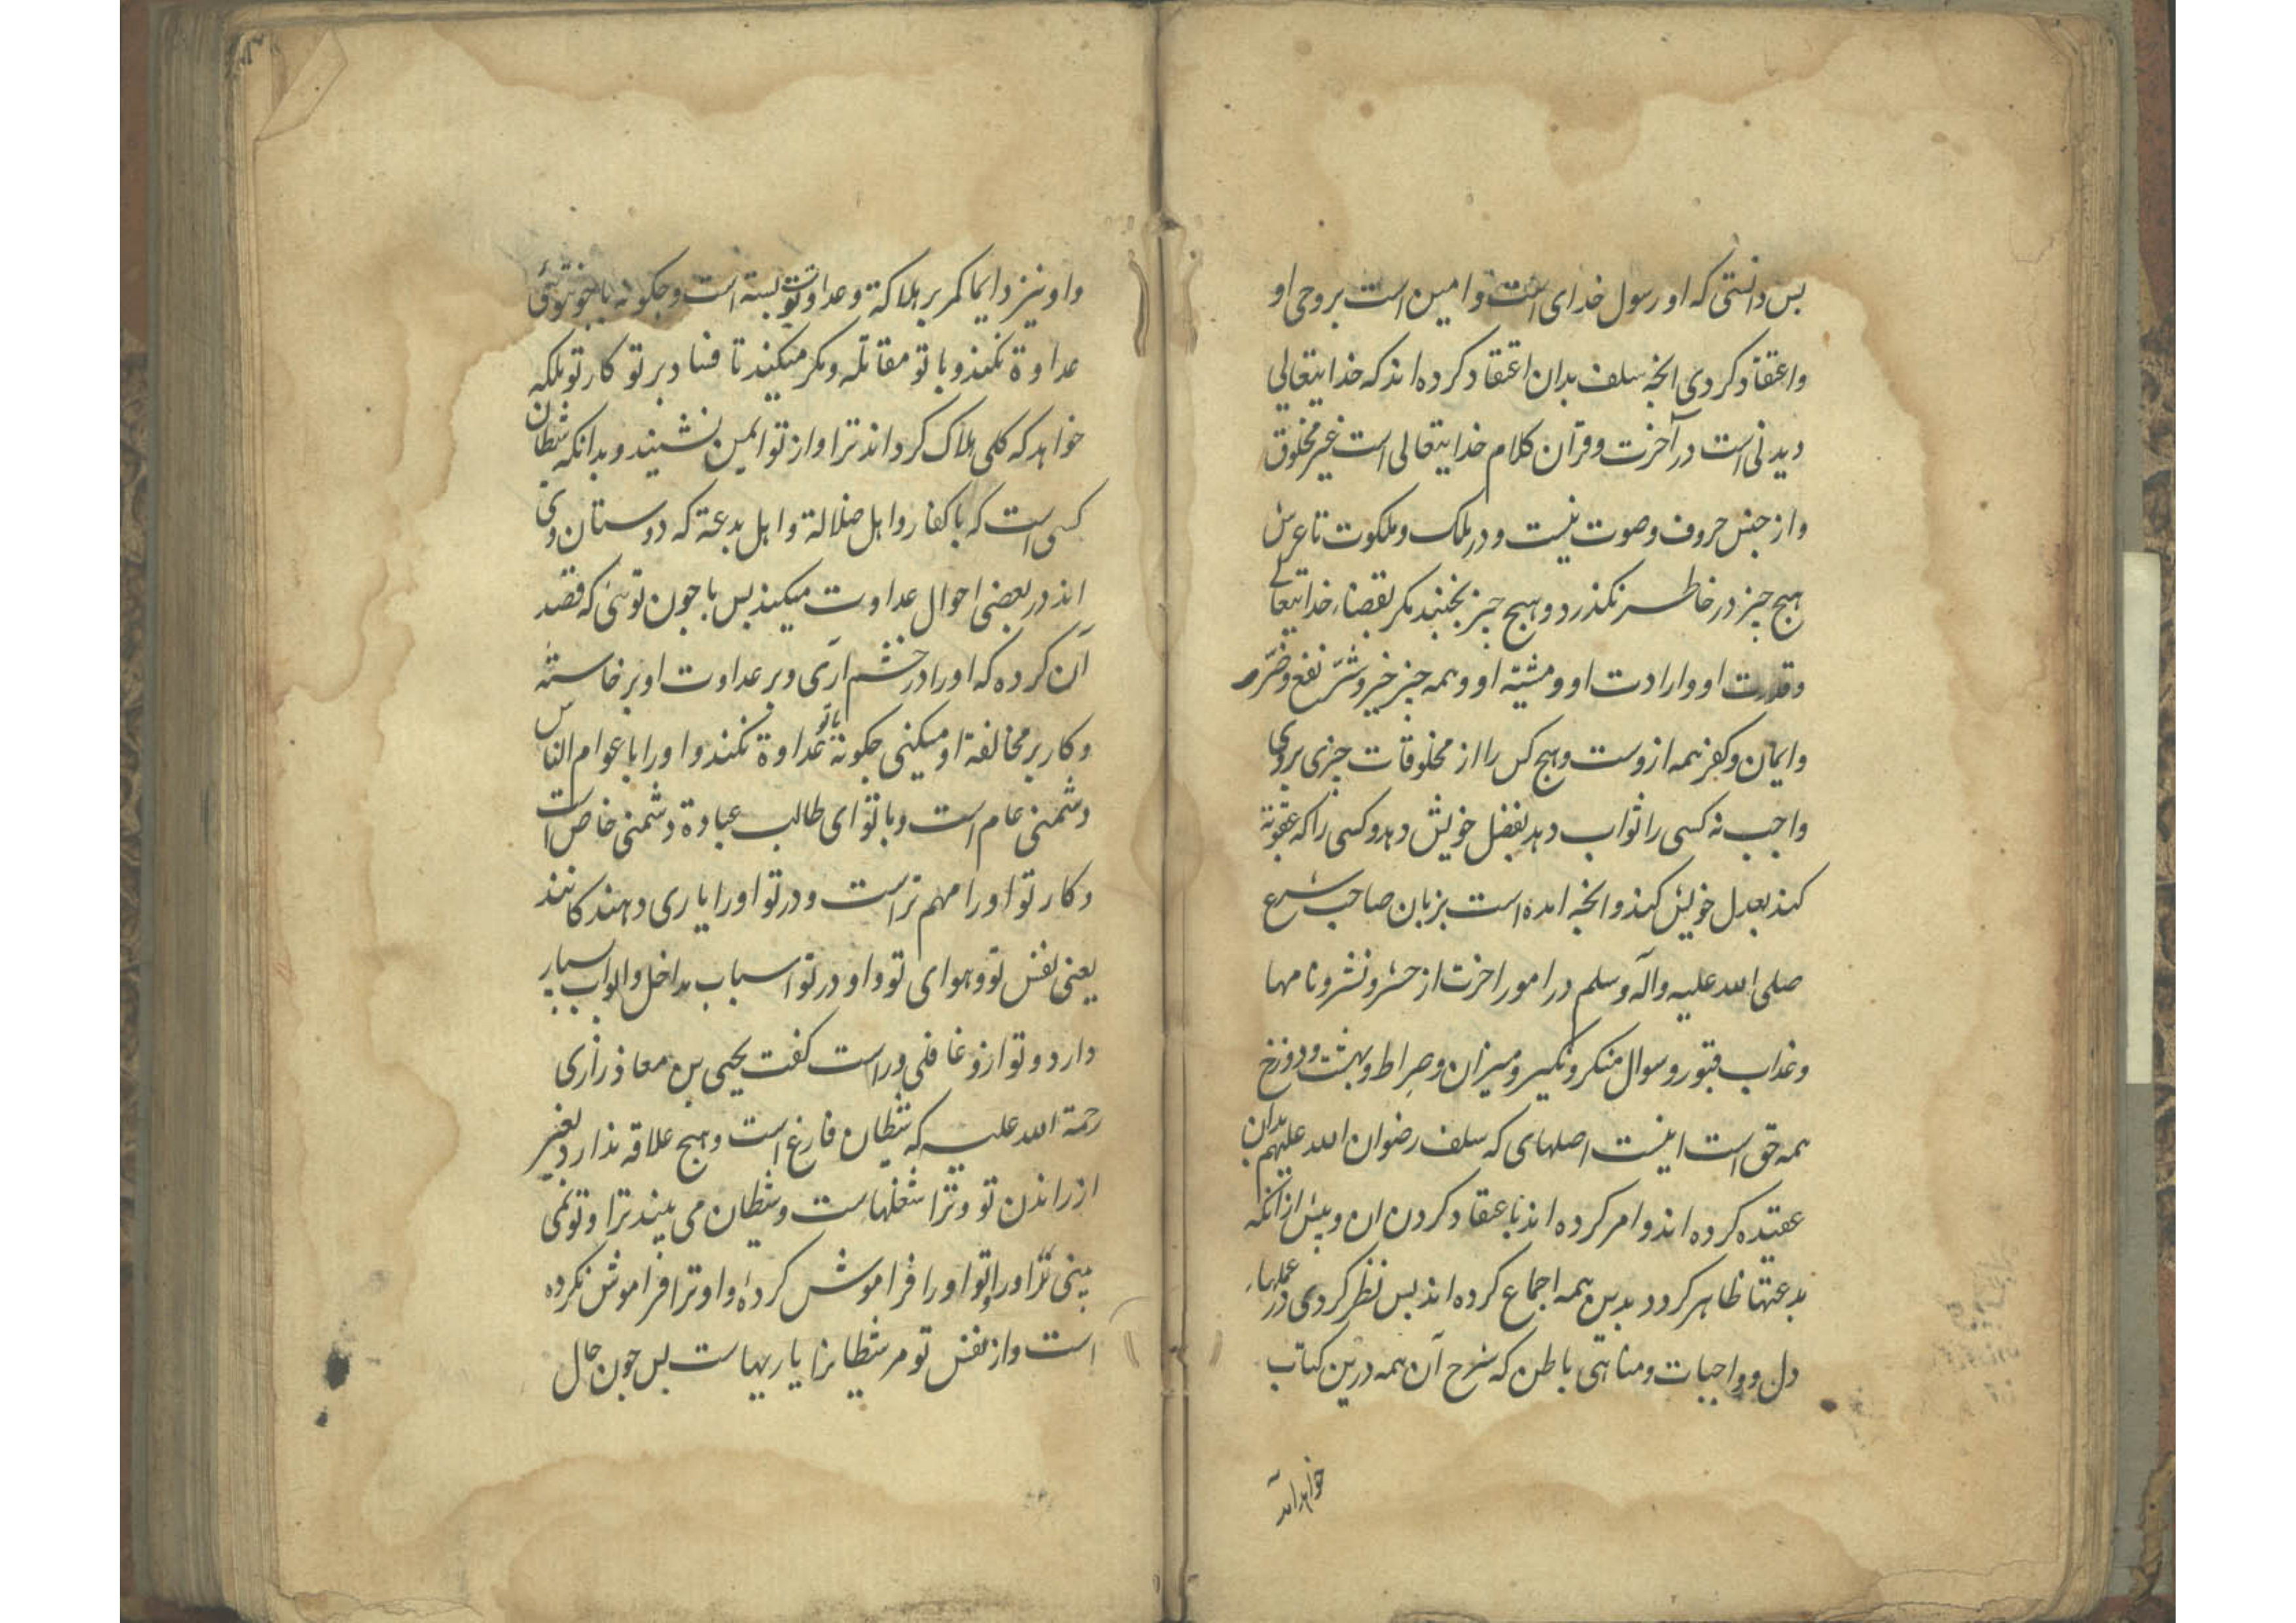 بس دانستی که او رسول خدای است و امین است بر وحی او
واعتقاد کردی انچه سلف بدان اعتقاد کرده اند که خدایتعالی
دیدنی است در آخرت و قرآن کلام خدایتعالی است غیر مخلوق
و از جنس حروف و صوت نیست و در ملک و ملکوت تا عرش
هیچ چیز در خاطر نکذرد و هیچ چیز نجنبد مکر بقضاء خدایتعالی
و قدرت او و ارادت او و مشیته او و همه چیز خیر و شر نفع و ضر
و ایمان و کفر همه ازوست و هیچ کس را از مخلوقات چیزی بروی
واجب نه کسی را ثواب دهد بفضل خویش دهد و کسی را که عقوبة
کند بعدل خویش کند و انچه امده است بزبان صاحب شرع
صلی الله علیه وآله وسلم در امور اخرت از حشر و نشر و نامها
و عذاب قبور و سوال منکر و نکیر و میزان و صراط و بهشت و دوزخ
همه حق است اینست اصلهای که سلف رضوان الله علیهم بدان
عقیده کرده اند و امر کرده اند باعتقاد کردن ان و بیش ازانکه
بدعتها ظاهر کردد بدین همه اجماع کرده اند بس نظر کردی در عملهاء
دل و واجبات و مناهی باطن که شرح آن همه درین کتاب
خواهد امد
و او نیز دایما کمر بر هلاکة و عداوت تو بسته است و چکونه با چون توئی
عداوة نکند و با تو مقاتله و مکر میکند تا فساد بر تو کار تو بلکه
خواهد که کلی هلاک کرداند ترا و از تو ایمن ننشیند و بدانکه شطان
کسی است که با کفار و اهل ضلالة و اهل بدعة که دوستان وی
اند در بعضی احوال عداوت میکند بس با چون توئی که قصد
آن کرده که او را در خشم اری و بر عداوت او بر خاسته
و کار بر مخالفة او میکنی چکونه با تو عداوة نکند و او را با عوام الناس
دشمنی عام است و با تو ای طالب عبادة دشمنی خاص است
و کار تو او را مهم تر است و در تو او را یاری دهند کانند
یعنی نفس تو و هوای تو و او در تو اسباب مداخل و ابواب بسیار
دارد و تو ازو غافلی و راست کفت یحیی بن معاذ رازی
رحمة الله علیه که شطان فارغ است و هیچ علاقه ندارد بغیر
از راندن تو و ترا شغلهاست و شطان می بیند ترا و تو نمی
بینی او را و تو او را فراموش کردهٔ و او ترا فراموش نکرده
است و از نفس تو مر شطانرا یاریهاست بس چون حال